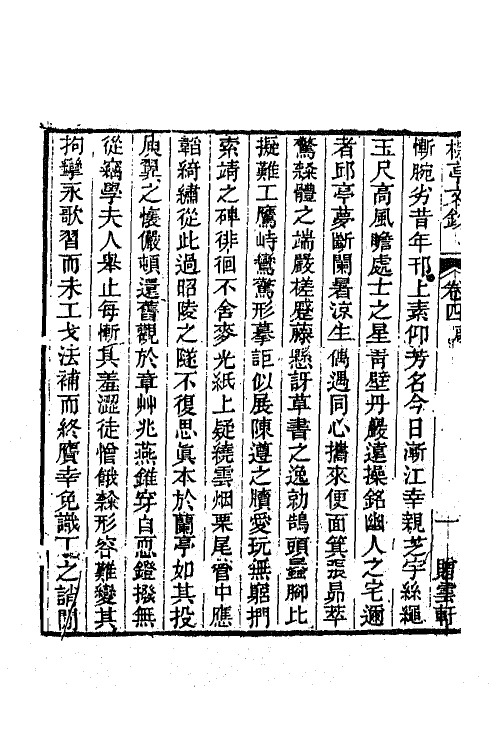 亭文鈔 卷四 一 贈雲軒
慚腕劣昔年邗上素仰芳名今日漸江幸親芝宇絲繩
玉尺高風瞻處士之星青壁丹巖遠操銘幽人之宅邇
者邱亭夢斷闌暑涼生偶遇同心攜來便面箕張昴萃
驚叅體之端嚴槎蹙藤懸訝草書之逸勃鵠頭蠆腳比
擬難工鷹峙鸞驚形摹詎似展陳遵之牘愛玩無窮捫
索靖之碑徘徊不舍麥光紙上疑繞雲烟栗尾管中應
韜綺繡從此過昭陵之隧不復思眞本於蘭亭如其投
庾翼之懷儼頓還舊觀於章艸兆燕錐穿自恧鐙撥無
從竊學夫人舉止每慚其羞澀徒憎餓隸形容難變其
拘攣永歌習而未工戈法補而終贋幸免識丁之誚